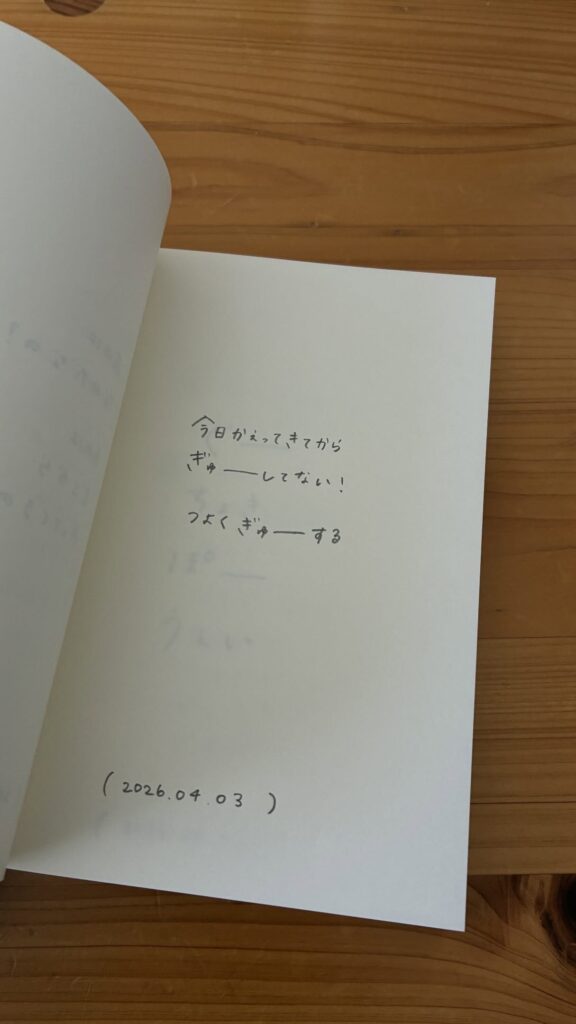 今日かえってきてから
ぎゅ——してない!
つよくぎゅ——する
(2026.04.03)